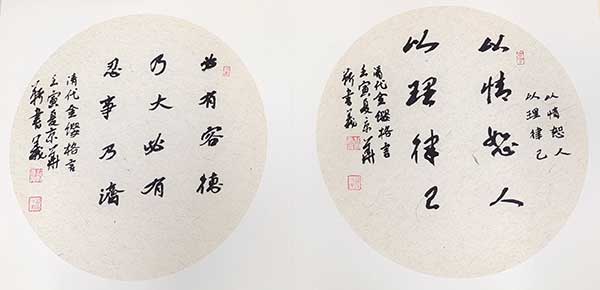 以情恕人
以理律己
以情恕人
以理律己
清代金缨格言
壬寅夏京華
必有容德
乃大必有
忍事乃濟
清代金缨格言
壬寅夏京華